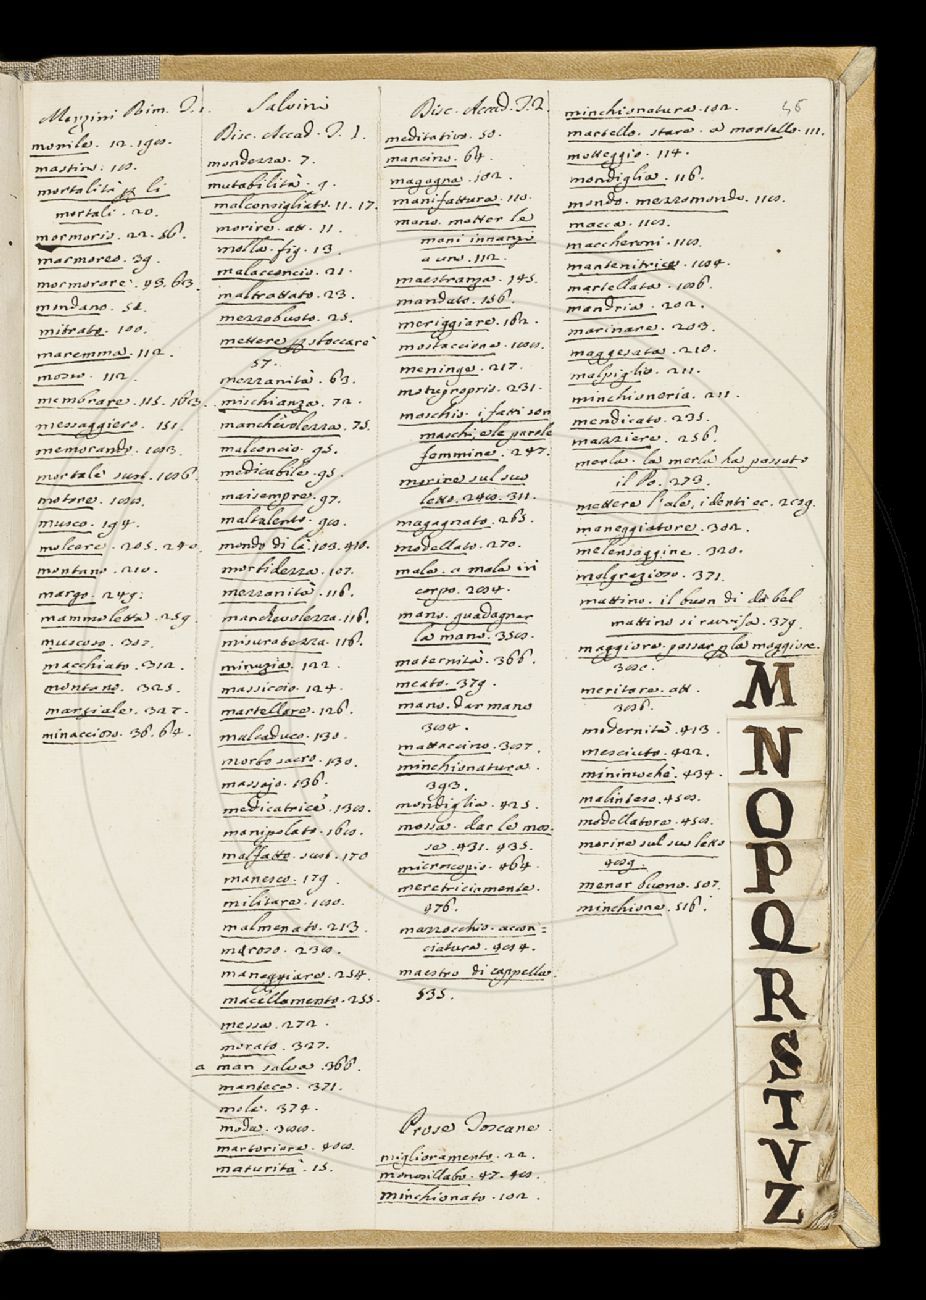 Rim. T. 1.
monile. 12.
mastino.
mortalità li
mortali. 20.
mormorio. 22. 56.
marmoreo. 39.
mormorare.
mondano.
mitrato. 100.
maremma. 112.
mosto. 112.
membrare. 115.
messaggiero. 151.
memorando.
mortale sust.
motore.
musco. 194.
molcere. 205. 240.
montano. 210.
margo. 249.
mammoletta. 259
muscoso. 307.
macchiato. 312.
montano. 325.
marziale. 327.
minaccioso. 36. 64.
Salvini
Disc. Accad. T. 1.
mondezza. 7.
mutabilità. 9.
malconsigliato. 11. 17.
morire. att. 11.
molla. fig. 13.
malacconcio. 21.
maltrattato. 23.
mezzobusto. 25.
mettere stoccare
57.
mezzanità. 63.
mischianza. 72.
manchevolezza. 75.
malconcio. 95.
medicabile. 95.
maisempre. 97.
maltalento.
mondo di là. 103. 410.
morbidezza. 107.
mezzanità. 116.
manchevolezza. 116.
misuratezza. 116.
minuzia. 122.
massiccio. 124.
martellare. 126.
malcaduco. 130.
morbo sacro. 130.
massajo. 136.
medicatrice.
manipolato.
malfatto. sust. 170
manesco. 179.
militare.
malmenato. 213.
maroso.
maneggiare. 254.
macellamento. 255.
messa. 272.
morato. 327.
a man salva. 366.
manteca. 371.
mole. 374.
moda.
martoriare.
maturità. 15.
Disc. Accad. T. 2.
meditativo. 50.
mancino. 64.
magagna. 102.
manifattura. 110.
mano. metter le
mani innanzi
a uno. 112.
maestranza. 145.
mandato. 156.
meriggiare. 162.
mostaccione.
meninge. 217.
motuproprio. 231.
maschio. i fatti son
maschi, e le parole
femmine. 247.
morire sul suo
letto. 311.
magagnato. 265.
modellato. 270.
male. a mala in
corpo.
mano. guadagnar
la mano.
maternità. 366.
meato. 379.
mano. dar mano
mattaccino.
minchionatura.
393.
mondiglia. 425.
mossa. dar le mos-
se. 431. 435.
microscopio. 464.
meretriciamente.
476.
mazzocchio. accon=
ciatura.
maestro di cappella.
535.
Prose Toscane.
miglioramento. 22.
monosillabo. 47.
minchionato. 102.
minchionatura. 102.
martello. stare a martello. 111.
motteggio. 114.
mondiglia. 116.
mondo. mezzomondo.
macca.
maccheroni.
mantenitrice.
martellata.
mandria. 202.
marinare. 203.
maggesata. 210.
malpiglio. 211.
minchioneria. 211.
mendicato. 235.
mazziere. 256.
merla. la merla ha passato
il Po. 273.
mettere l'ale, i denti ec.
maneggiatore. 302.
melensaggine. 320.
malgrazioso. 371.
mattino. il buon dì dal bel
mattino si ravvisa. 379.
maggiore. passar la maggiore.
meritare. att.
modernità. 413.
mesciuto. 422.
mininochè. 434.
malinteso.
modellatore.
morire sul suo letto
menar buono. 507.
minchione. 516.
M
N
O
P
Q
R
S
T
V
Z